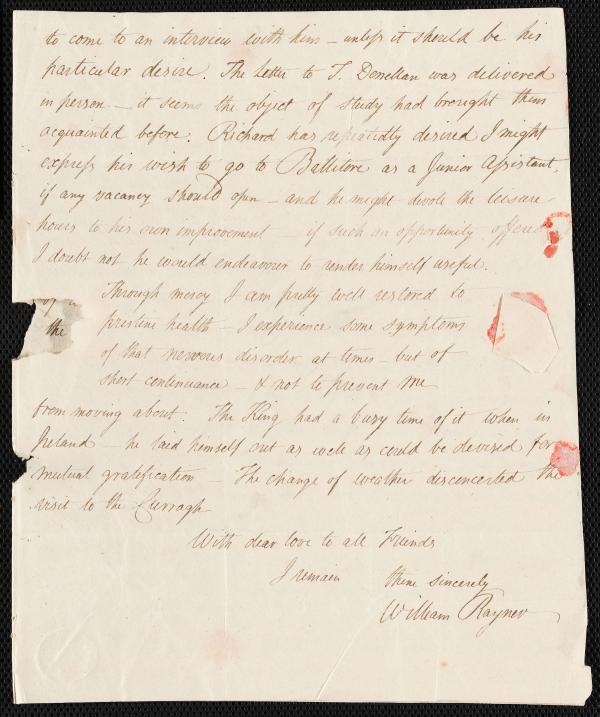 to come to an interview with him – unless it should be his
particular desire. The Letter to T. Donellan was delivered
in person – it seems the object of study had brought them
acquainted before. Richard has repeatidly desired I might
express his wish to go to Ballitore as a Junior Assistant,
if any vacancy should open – and he might divote the leisure
hours to his own improvement if such an opportunity offered
I doubt not he would endeavour to render himself useful.
Through mercy I am pretty well restored to
the pristine health – I experience some symptoms
of that nervous disorder at times – but of
short continuance – & not to prevent me
from moving about. The King had a busy time of it when in
Ireland – he laid himself out as well as could be devised for
mutual gratification The change of weather disconcerted the
visit to the Curragh
With dear love to all Friends
I remain thine sincerely
William Rayner